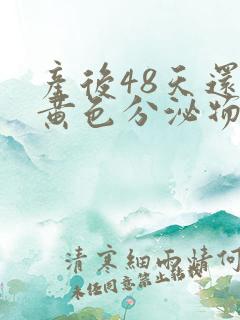 產後48天還
黃色分泌物
清寒細雨情何
未任同意禁止転載